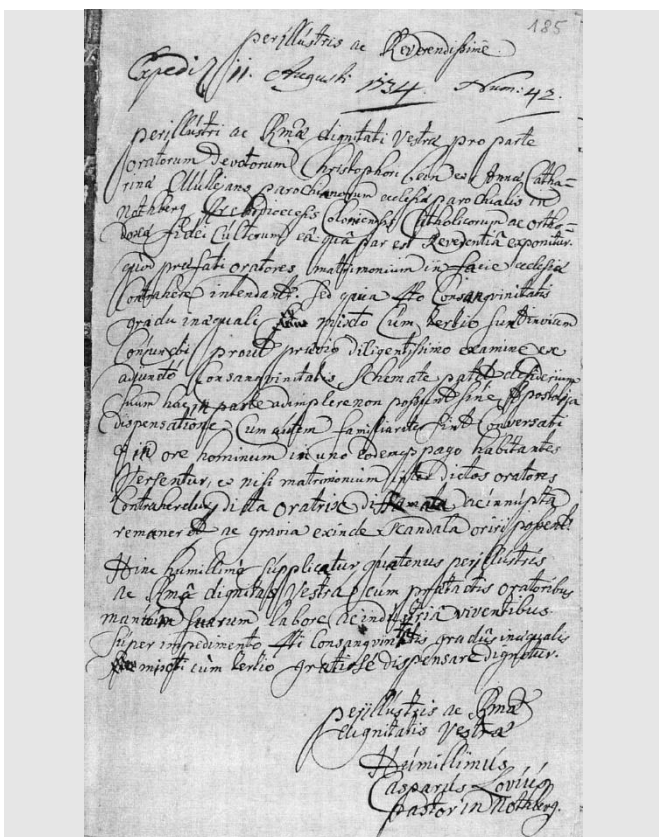 185
perillustris ac Reverendissime
Expedi 11 Augusti 1734. Num: 42.
perillustri ac Rmae dignitati Vestrae pro parte
oratorum devotorum Christophori et Anna Catha=
rina parochianorum ecclesiae parochialis in
Nothberg Archidioecesis Coloniensis Catholicorum ac ortho=
doxae fidei Cultorum eâ quâ par est Reverentiâ exponitur
quod praefati oratores matrimonium in facie ecclesiae
Contrahere intendant. Sed quia 4to Consangvinitatis
gradu inaequali mixto Cum tertio sunt invicem
Conjuncti prout praevio diligentissimo examine ex
adjuncto Consangvinitatis Schemate patet desiderium
suum hac in parte adimplere non possunt sine Apostolica
dispensatione, Cum autem familiariter sint Conversati
et in ore hominum in uno eodemque pago habitantes
Versentur, et nisi matrimonium inter dictos oratores
Contraheretur, dicta oratrix diffamata ac innupta
remaneret ac gravia exinde scandala oriri possent
Hinc humillimè supplicatur quatenus perillustris
ac Rmâ dignitas Vestra cum praetactis oratoribus
manuum suarum labore ac industriâ viventibus
super impedimento 4ti Consangvinitatis gradûs inaequalis
mixti cum tertio gratiosè dispensare dignetur.
perillustris ac Rmae
dignitatis Vestrae
Humillimus
Casparus Lovius
pastor in Nothberg.